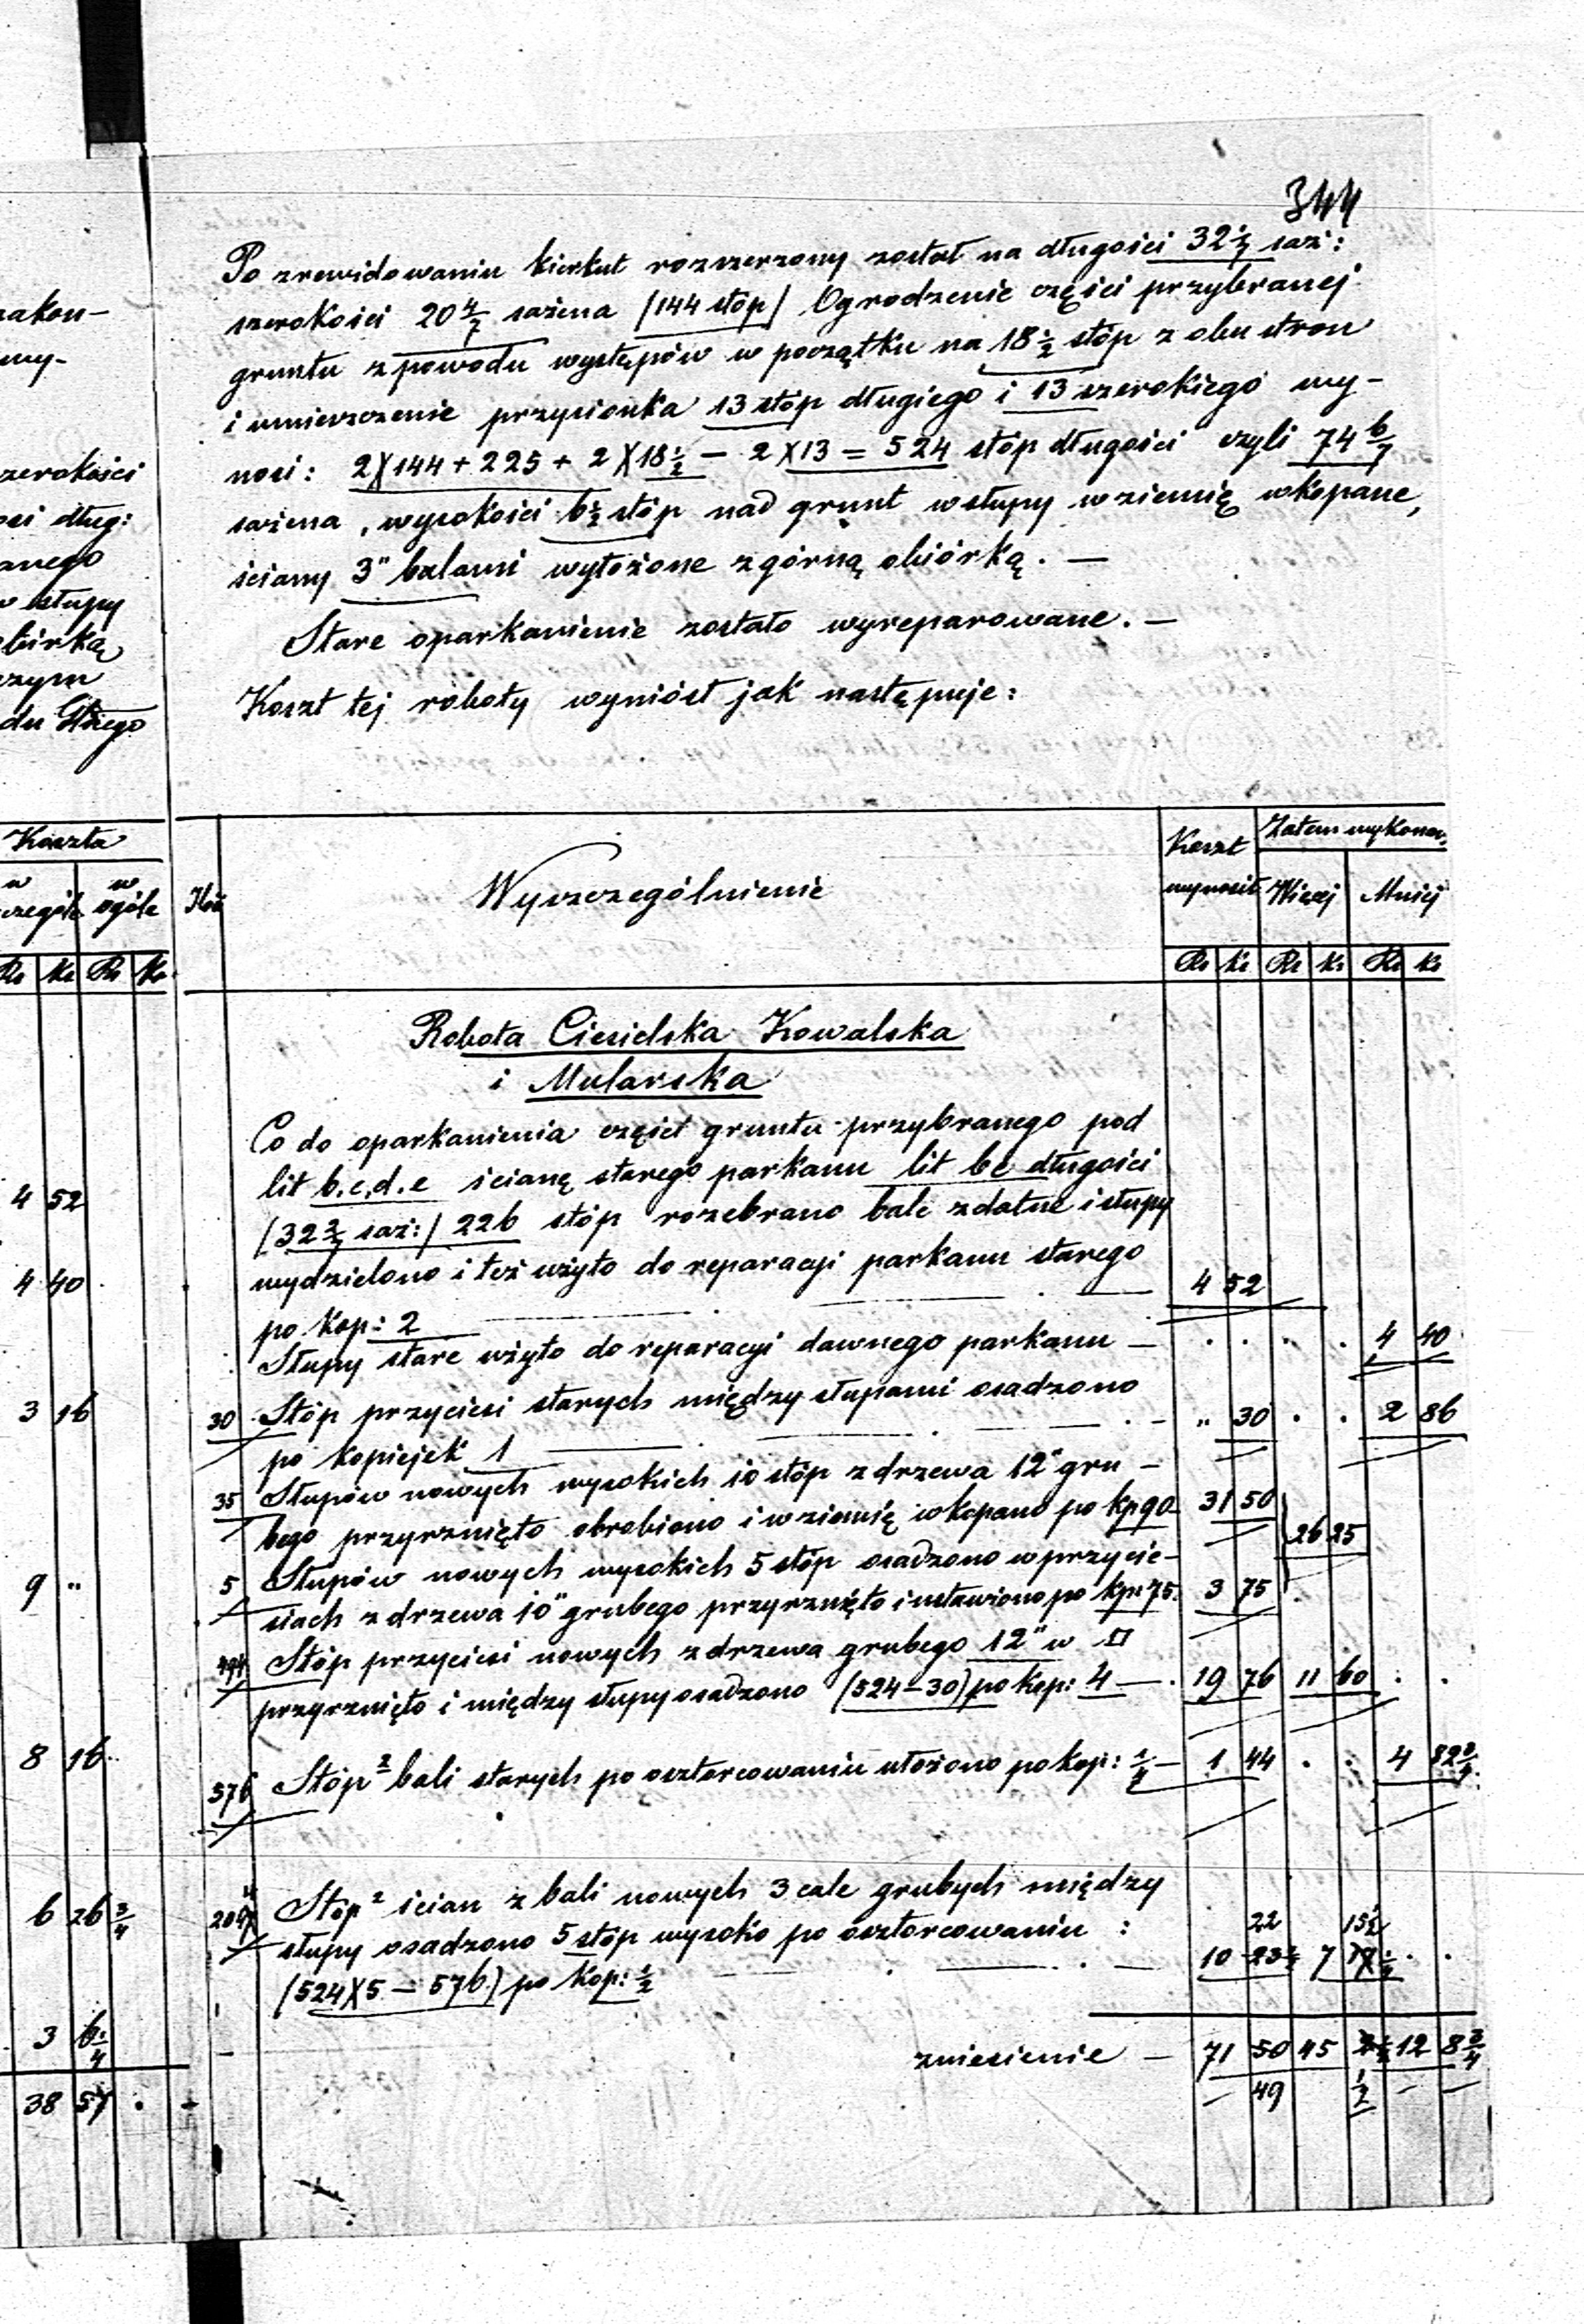 344
Po zrewidowaniu kierkut rozszerzony został na długości 32 2/7 saż:
szerokości 20 4/7 sażena /144 stóp/ Ogrodzenie części przybranej
gruntu z powodu występów w początku na 18 1/2 stóp z obu stron
i umieszczenie przysionka 13 stóp długiego i 13 szerokiego wy-
nosi: 2X144 + 225 + 2X18 1/2 – 2X13 = 524 stóp długości czyli 74 6/7
sażena, wysokości 6 1/2 stóp nad grunt w słupy w ziemię wkopane,
ściany 3" balami wyłożone z górną obiórką. —
Stare oparkanienie zostało wyreparowane. —
Koszt tej roboty wyniósł jak następuje:
Ilość
Wyszczególnienie
Koszt wynosił
Zatem wykonan:
Więcej
Mniej
Rs Ks Rs Ks Rs Ks
Robota Ciesielska Kowalska
i Mularska
Co do oparkanienia części gruntu przybranego pod
lit b.c.d.e ścianę starego parkanu lit be długości
/32 2/7 saż:/ 226 stóp rozebrano bale zdatne i słupy
wydzielono i też użyto do reparacyi parkanu starego
po kop: 2 — 4 52
Słupy stare użyto do reparacyi dawnego parkanu — . . . . 4 40
30 Stóp przyciesi starych między słupami osadzono
po kopiejek 1 — " 30 . . 2 86
35 Słupów nowych wysokich 10 stóp z drzewa 12" gru-
bego przyrznięto obrobiono i w ziemię wkopano po kp 90 31 50
26 25
5 Słupów nowych wysokich 5 stóp osadzono w przycie-
siach z drzewa 10" grubego przyrznięto i ustawiono po kp: 75. 3 75
494 Stóp przyciesi nowych z drzewa grubego 12" w □
przyrznięto i między słupy osadzono (524–30) po kop: 4 — 19 76 11 60 . .
576 Stóp² bali starych po osztorcowaniu ułożono po kop: 1/4 — 1 44 . . 4 82 3/4
Stóp² ścian z bali nowych 3 cale grubych między
słupy osadzono 5 stóp wysoko po osztorcowaniu :
22 15 1/2
(524X5 – 576) po kop: 1/2 — 10 23 1/2 7
zniesienie — 71 50 45 12 8 3/4
49 1/2
zakon-
wy-
szerokości
ści dług:
anego
w słupy
obiórką
szym
du
Koszta
w
szczególe
w
ogóle
Rs Ks Rs Ks
4 52
4 40
3 16
9 "
8 16
6 26 3/4
3 6 1/4
38 57